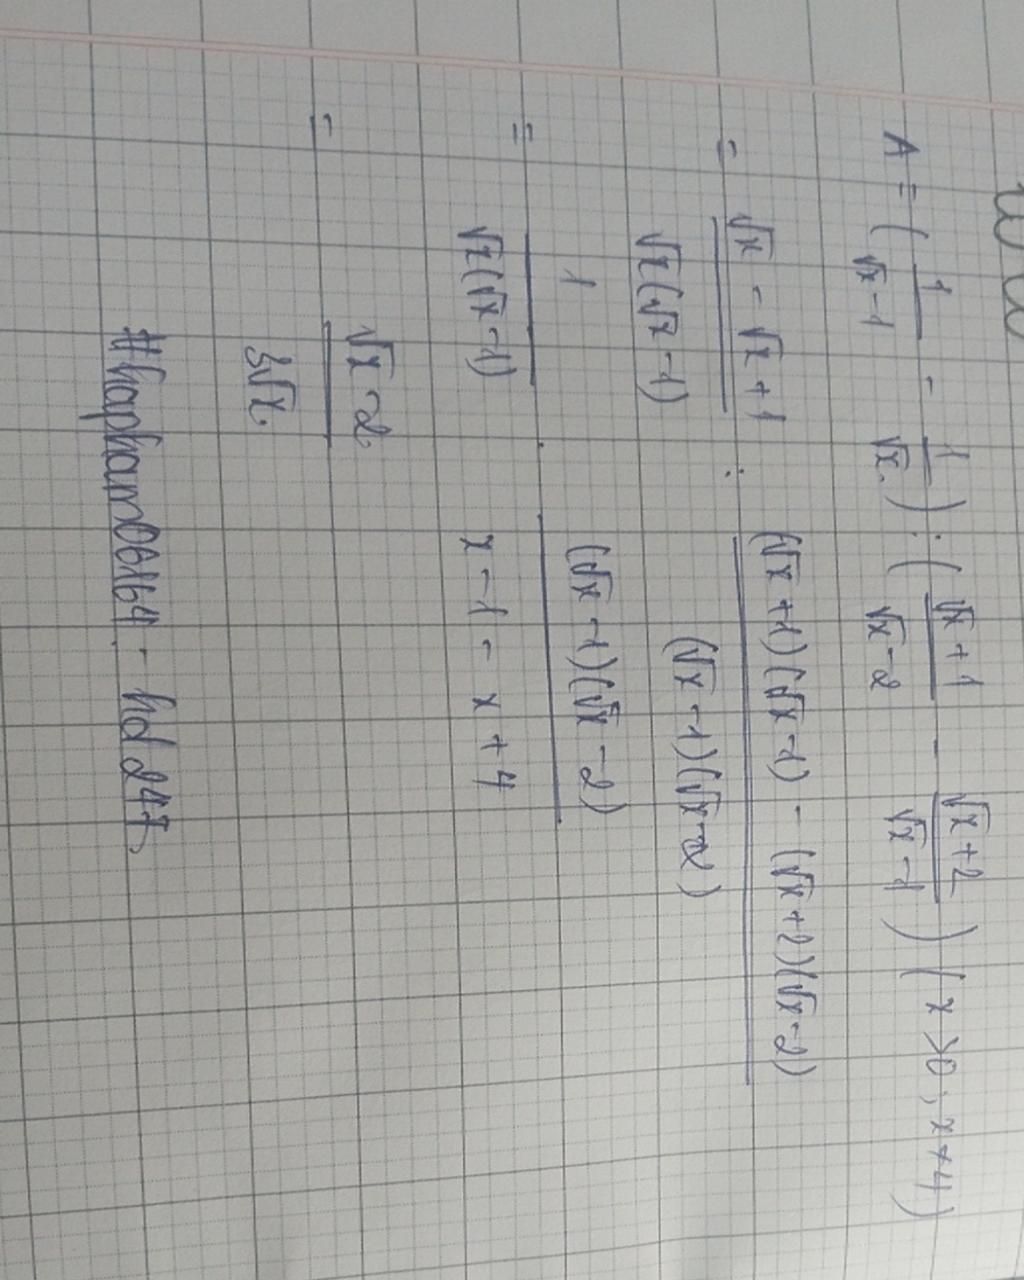 A = (1/(√x - 1) - 1/√x) : ((√x + 1)/(√x - 2) - (√x + 2)/(√x - 1)) (x > 0; x ≠ 4)
= (√x - √x + 1)/(√x(√x - 1)) : ((√x + 1)(√x - 1) - (√x + 2)(√x - 2))/((√x - 1)(√x - 2))
= 1/(√x(√x - 1)) . ((√x - 1)(√x - 2))/(x - 1 - x + 4)
= (√x - 2)/(3√x)
#hapham06164 - hd247